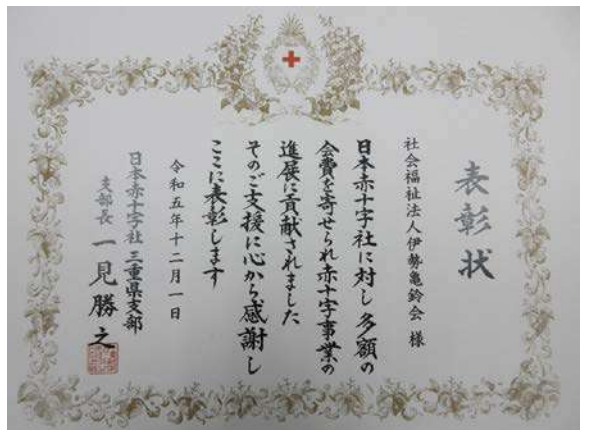 表彰状
社会福祉法人伊勢亀鈴会 様
日本赤十字社に対し多額の
会費を寄せられ赤十字事業の
進展に貢献されました
そのご支援に心から感謝し
ここに表彰します
令和五年十二月一日
日本赤十字社 三重県支部
支部長 一見勝之